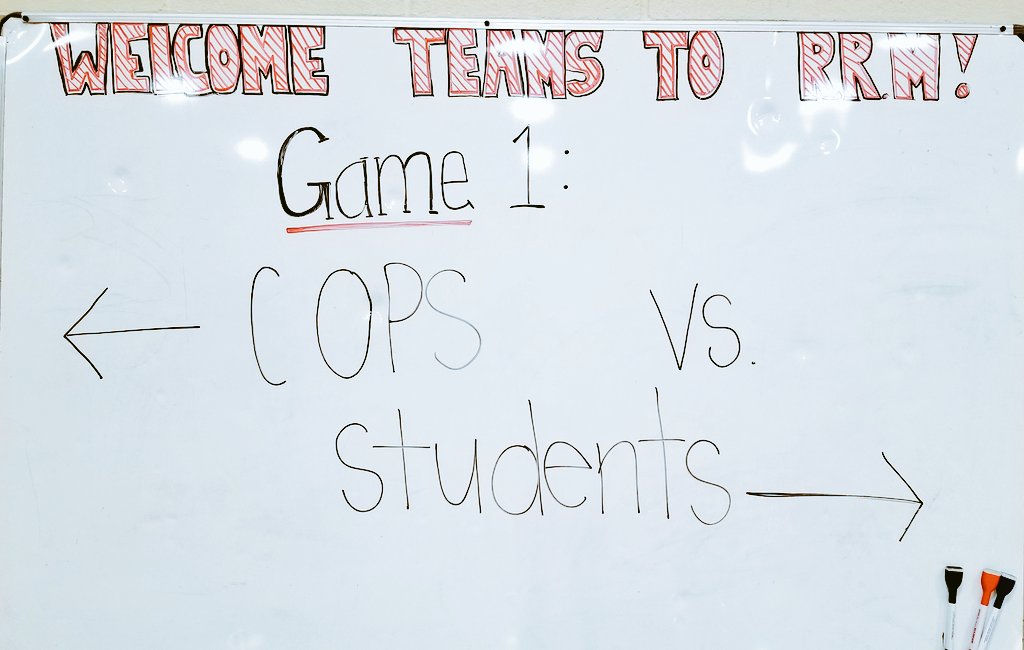 WELCOME TEAMS TO RR.M!
Game 1:
COPS vs.
students